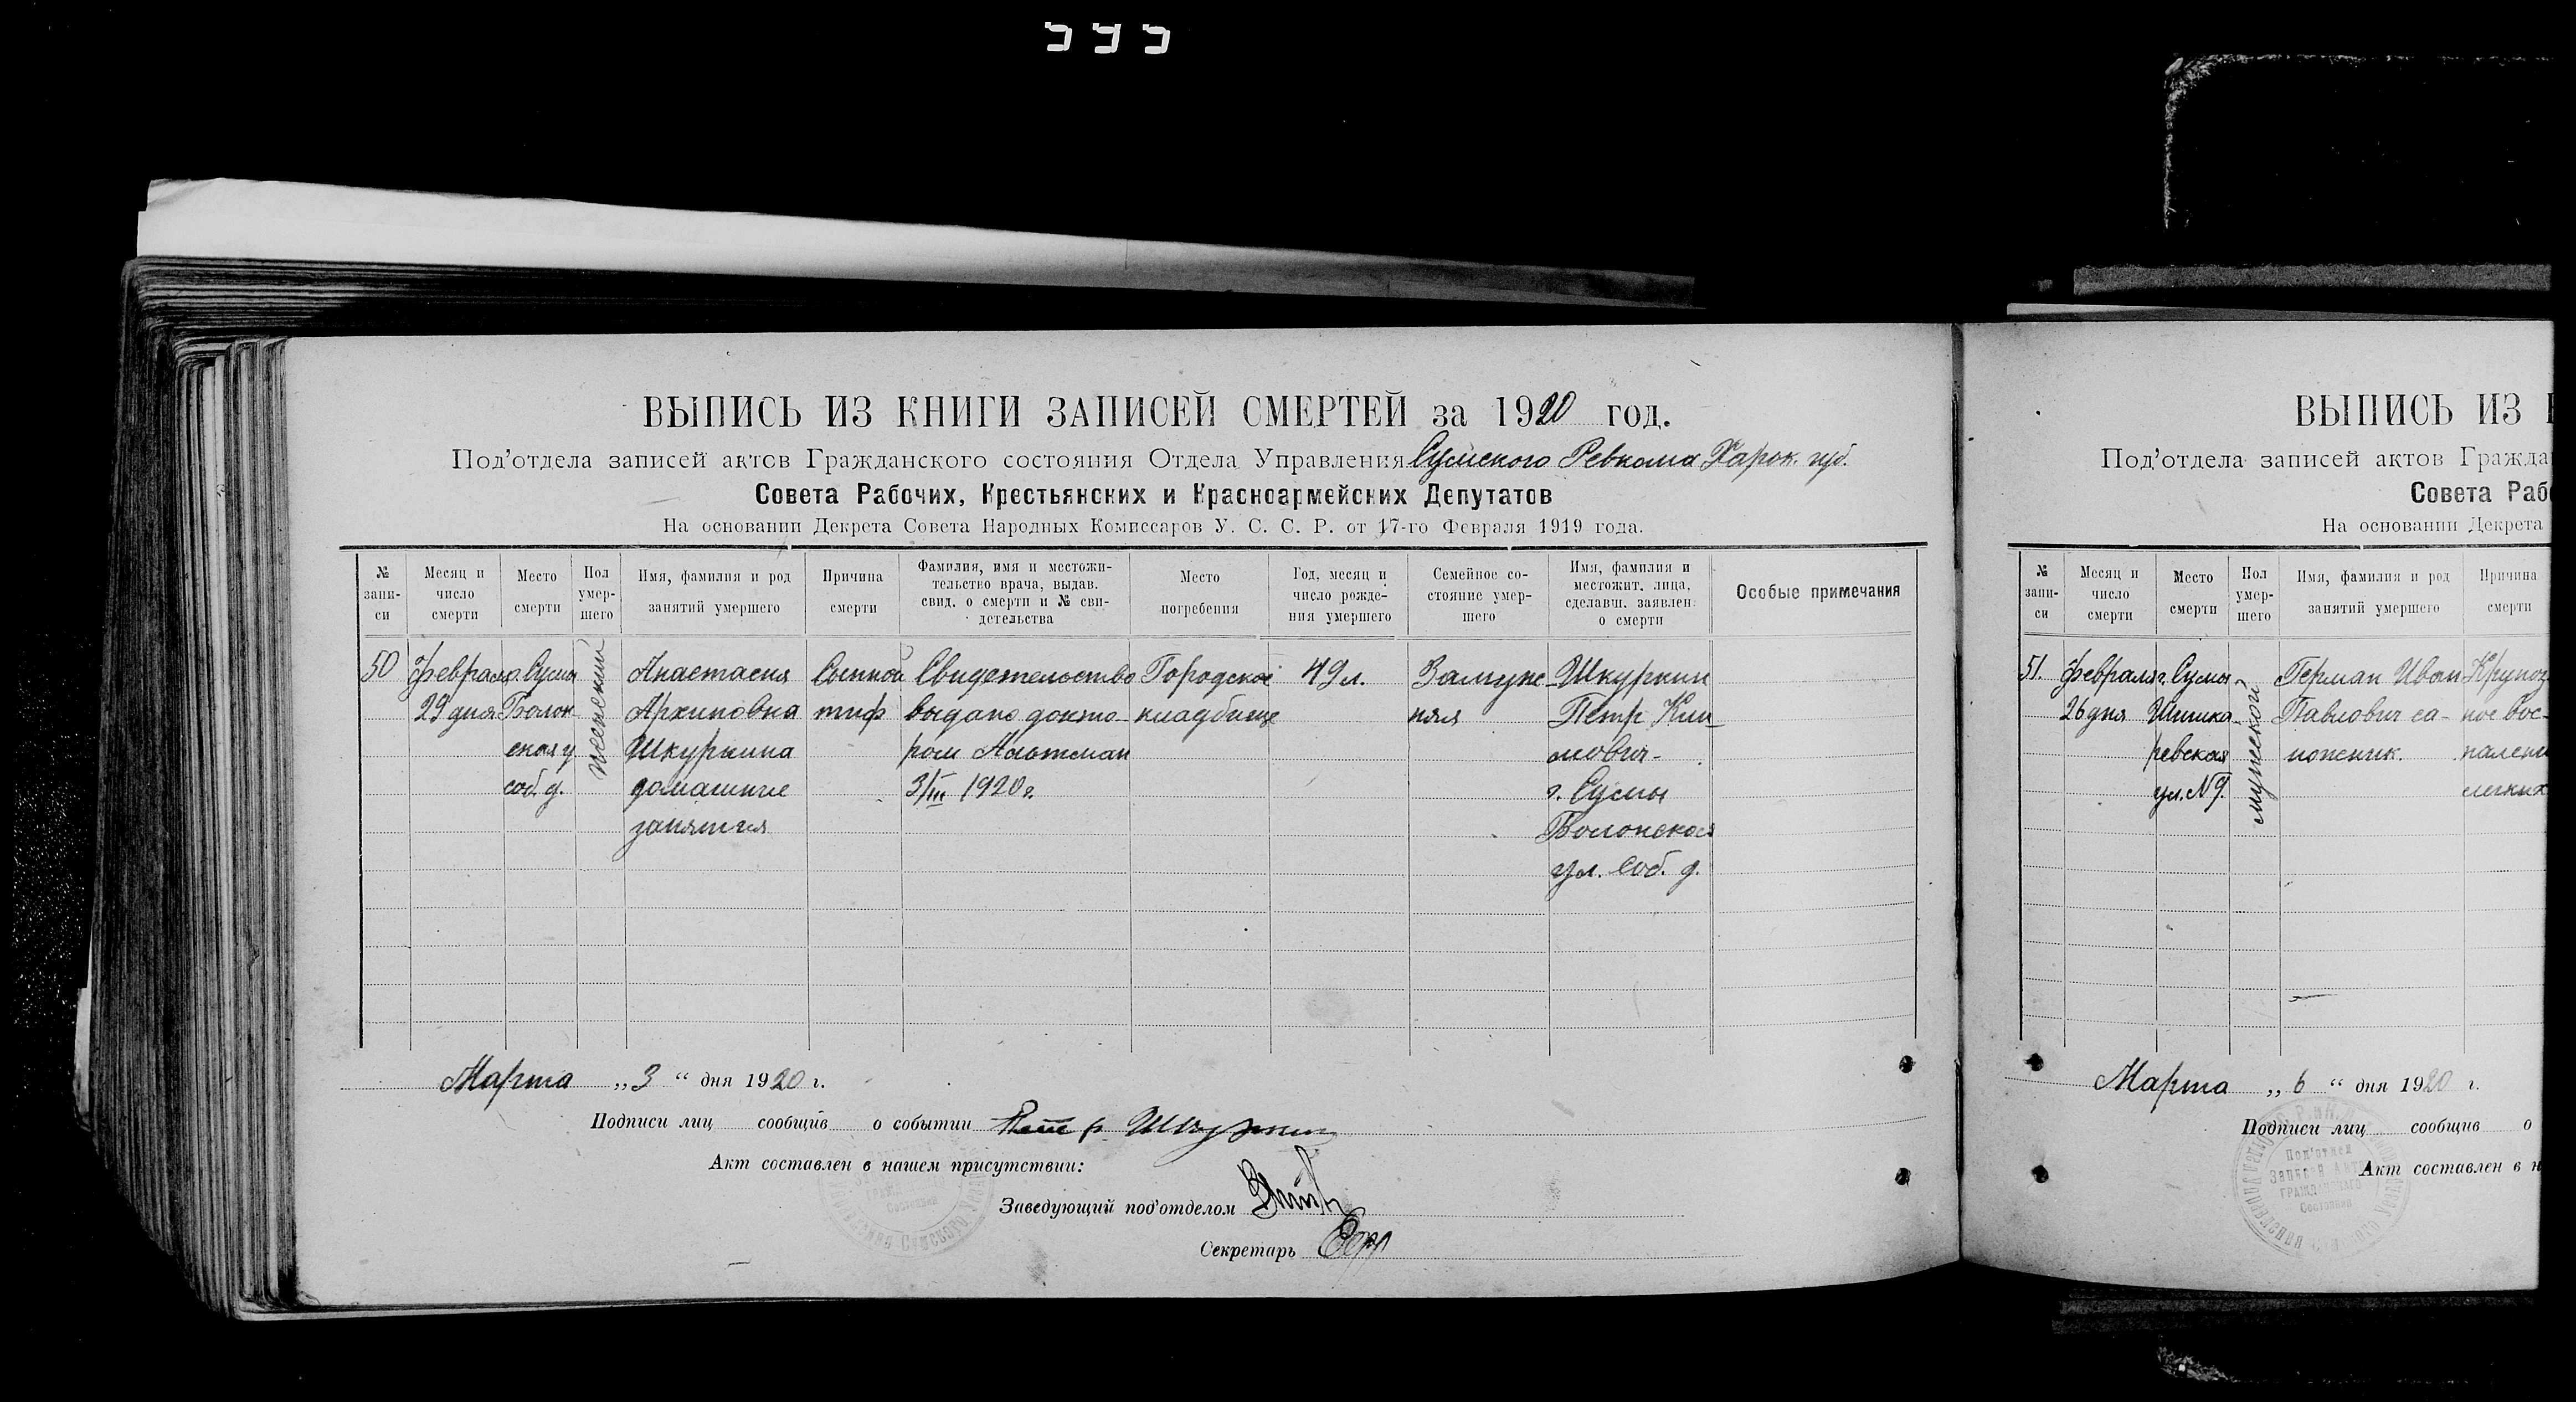 ВЫПИСЬ ИЗ КНИГИ ЗАПИСЕЙ СМЕРТЕЙ за 1920 год.
Под'отдела записей актов Гражданского состояния Отдела Управления Сумского Ревкома Харьк. губ.
Совета Рабочих, Крестьянских и Красноармейских Депутатов
На основании Декрета Совета Народных Комиссаров У. С. С. Р. от 17-го Февраля 1919 года.
№ запи-
си
Месяц и
число
смерти
Место
смерти
Пол
умер-
шего
Имя, фамилия и род
занятий умершего
Причина
смерти
Фамилия, имя и местожи-
тельство врача, выдав.
свид. о смерти и № сви-
детельства
Место
погребения
Год, месяц и
число рожде-
ния умершего
Семейное со-
стояние умер-
шего
Имя, фамилия и
местожит. лица,
сделавш. заявлен.
о смерти
Особые примечания
50
Февраля
29 дня
г. Сумы
Волон
ская у
соб. д.
женский
Анастасия
Архиповна
Шкуркина
домашние
занятия
Сыпной
тиф
Свидетельство
выдано докто-
ром Альтман
3/III 1920 г.
Городское
кладбище
49 л.
Замуж-
няя
Шкуркин
Петр
мович
г. Сумы
Волонская
ул. соб. д.
Марта „3“ дня 1920 г.
Подписи лиц сообщив о событии Петр Шкуркин
Акт составлен в нашем присутствии:
Заведующий под'отделом
Секретарь
ВЫПИСЬ ИЗ
Под'отдела записей актов Гражда
Совета Раб
На основании Декрета
№
запи-
си
Месяц и
число
смерти
Место
смерти
Пол
умер-
шего
Имя, фамилия и род
занятий умершего
Причина
смерти
51.
Февраля
26 дня
г. Сумы
Шишка-
ревская
ул. № 9.
мужской
Герман Иван
Павлович са-
пожник.
Крупоз
ное вос-
палени
легких
Марта „6“ дня 1920 г.
Подписи лиц сообщив о
Под'отдел
Записей Актов
Гражданского
Состояния
Акт составлен в н